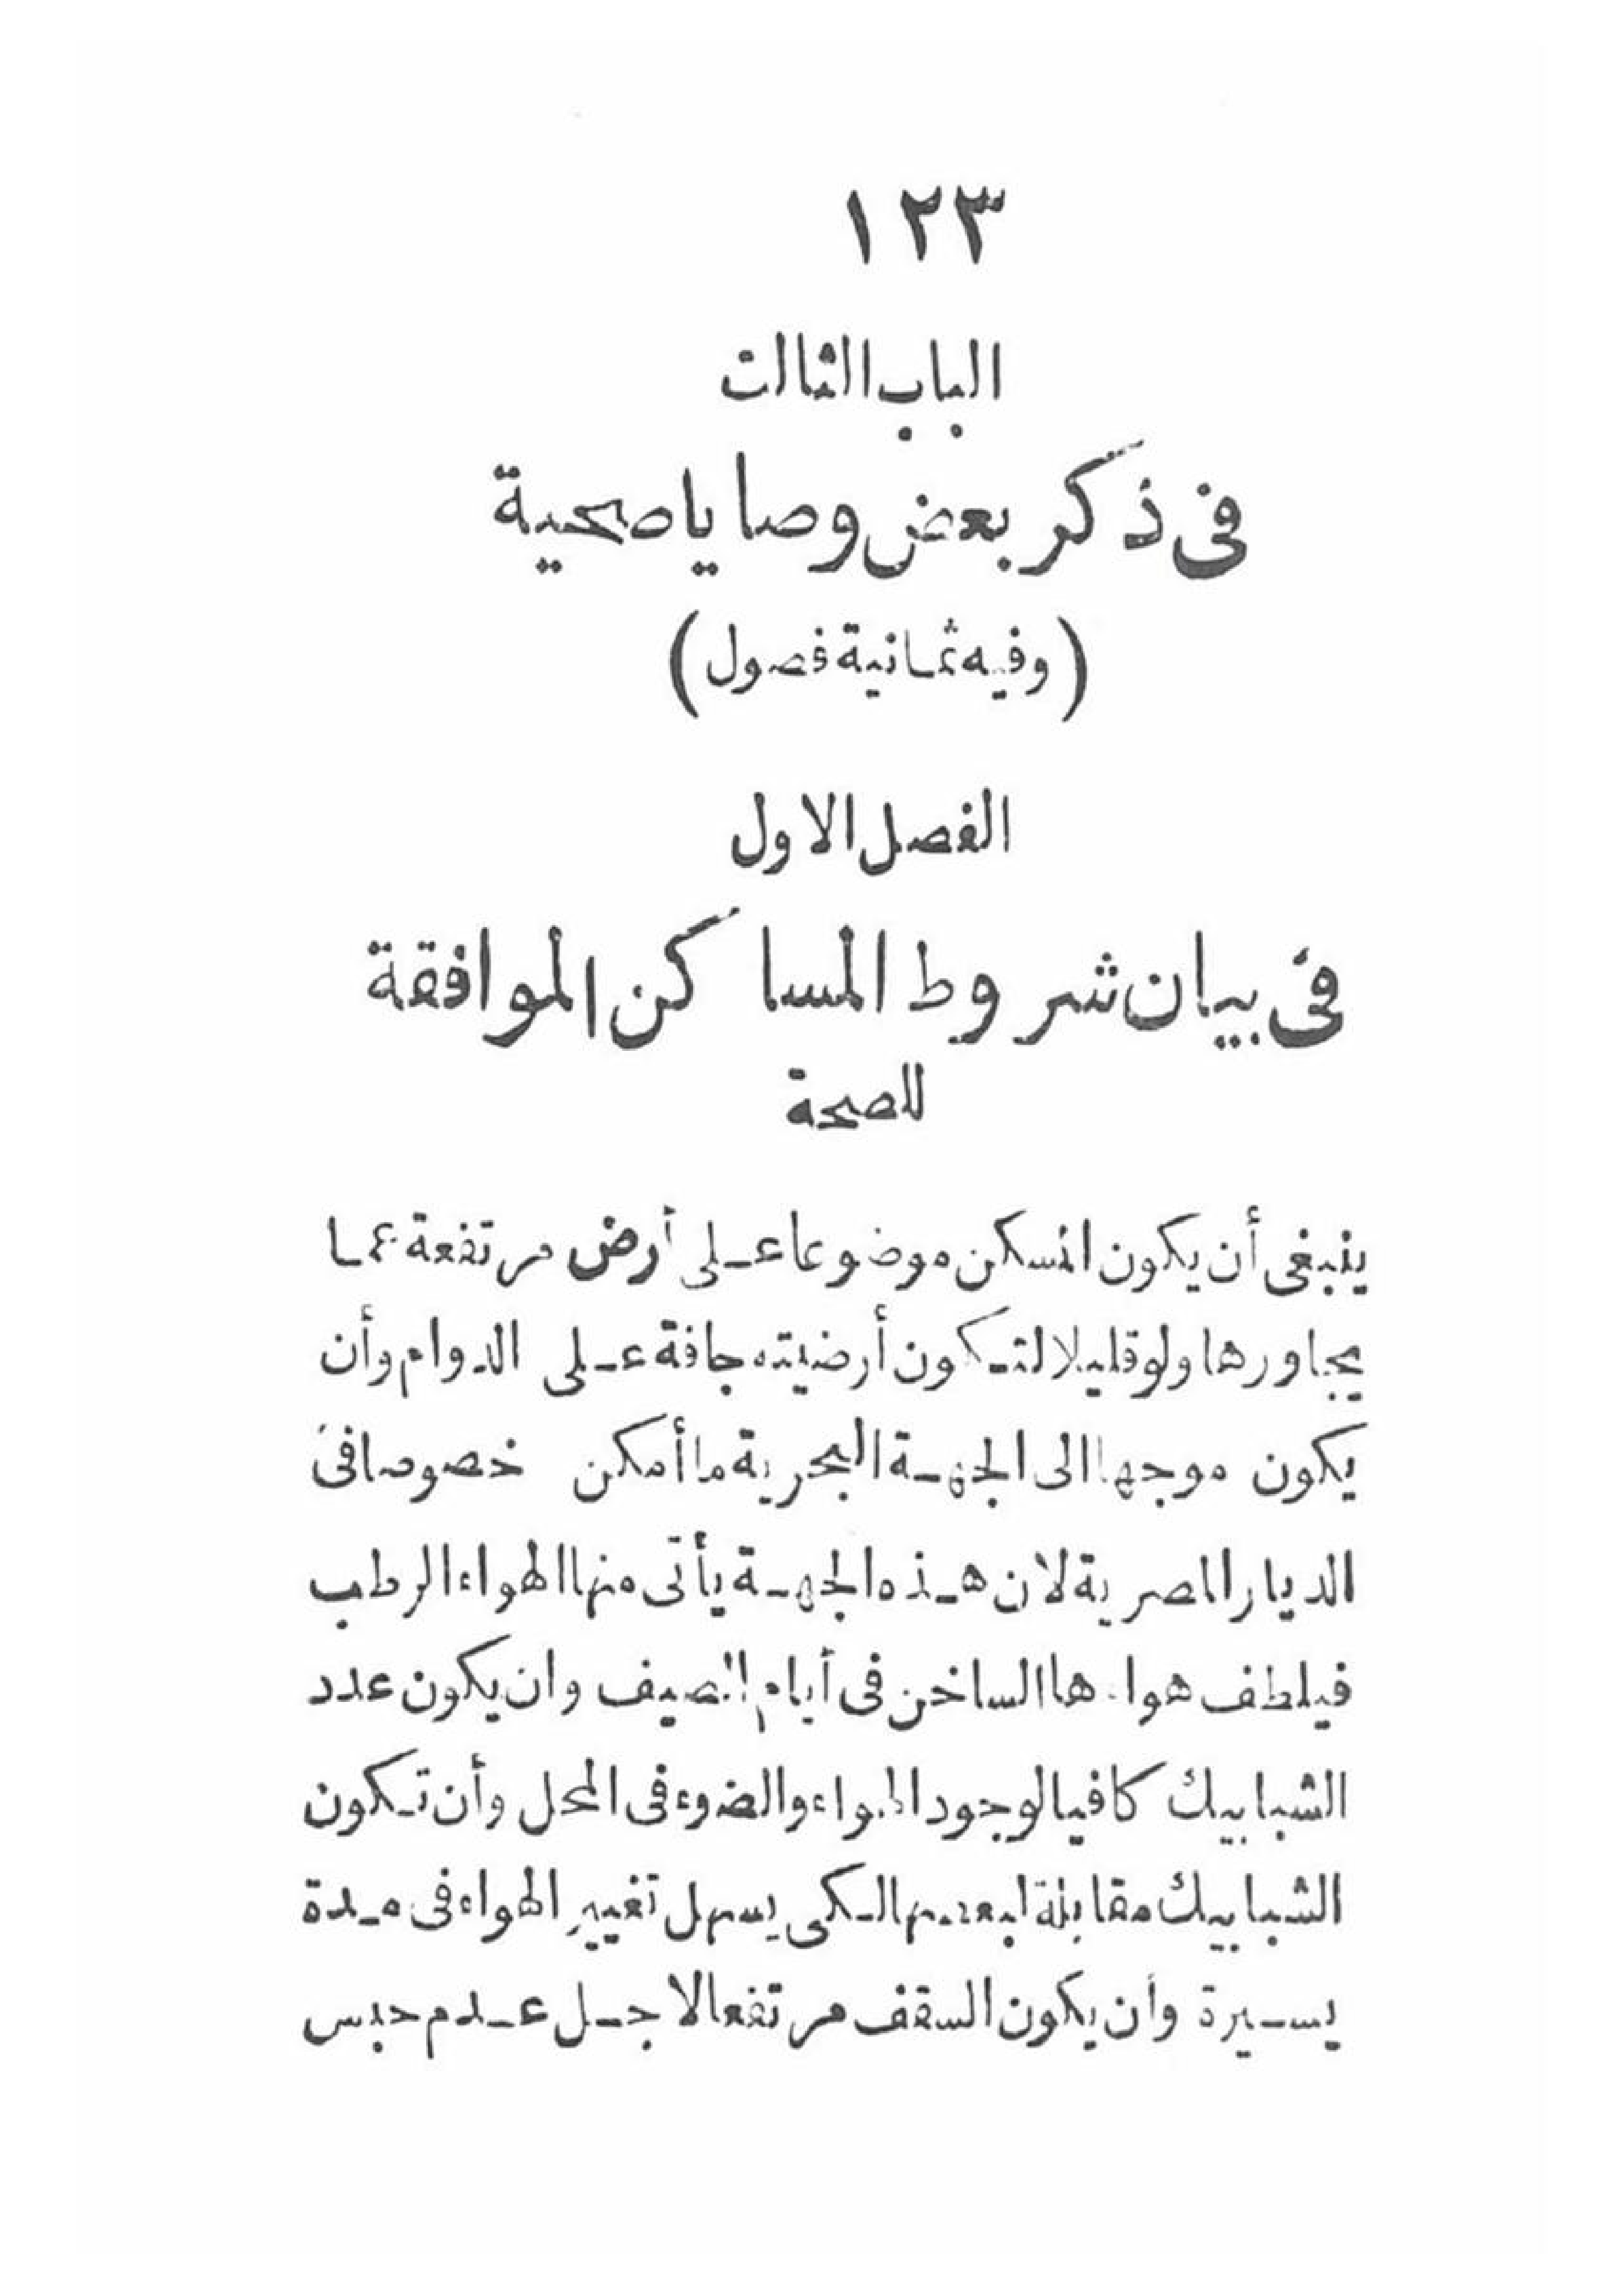 ١٢٣
الباب الثالث
فى ذكر بعض وصايا صحية
(وفيه ثمانية فصول)
الفصل الاول
فى بيان شروط المساكن الموافقة
للصحة
ينبغى أن يكون المسكن موضوعا على أرض مرتفعة عما
يجاورها ولو قليلا لتكون أرضيته جافة على الدوام وأن
يكون موجها الى الجهة البحرية ما أمكن خصوصا فى
الديار المصرية لان هذه الجهة يأتى منها الهواء الرطب
فيلطف هواءها الساخن فى أيام الصيف وان يكون عدد
الشبابيك كافيا لوجود الهواء والضوء فى المحل وأن تكون
الشبابيك مقابلة لبعضها لكى يسهل تغيير الهواء فى مدة
يسيرة وأن يكون السقف مرتفعا لاجل عدم حبس